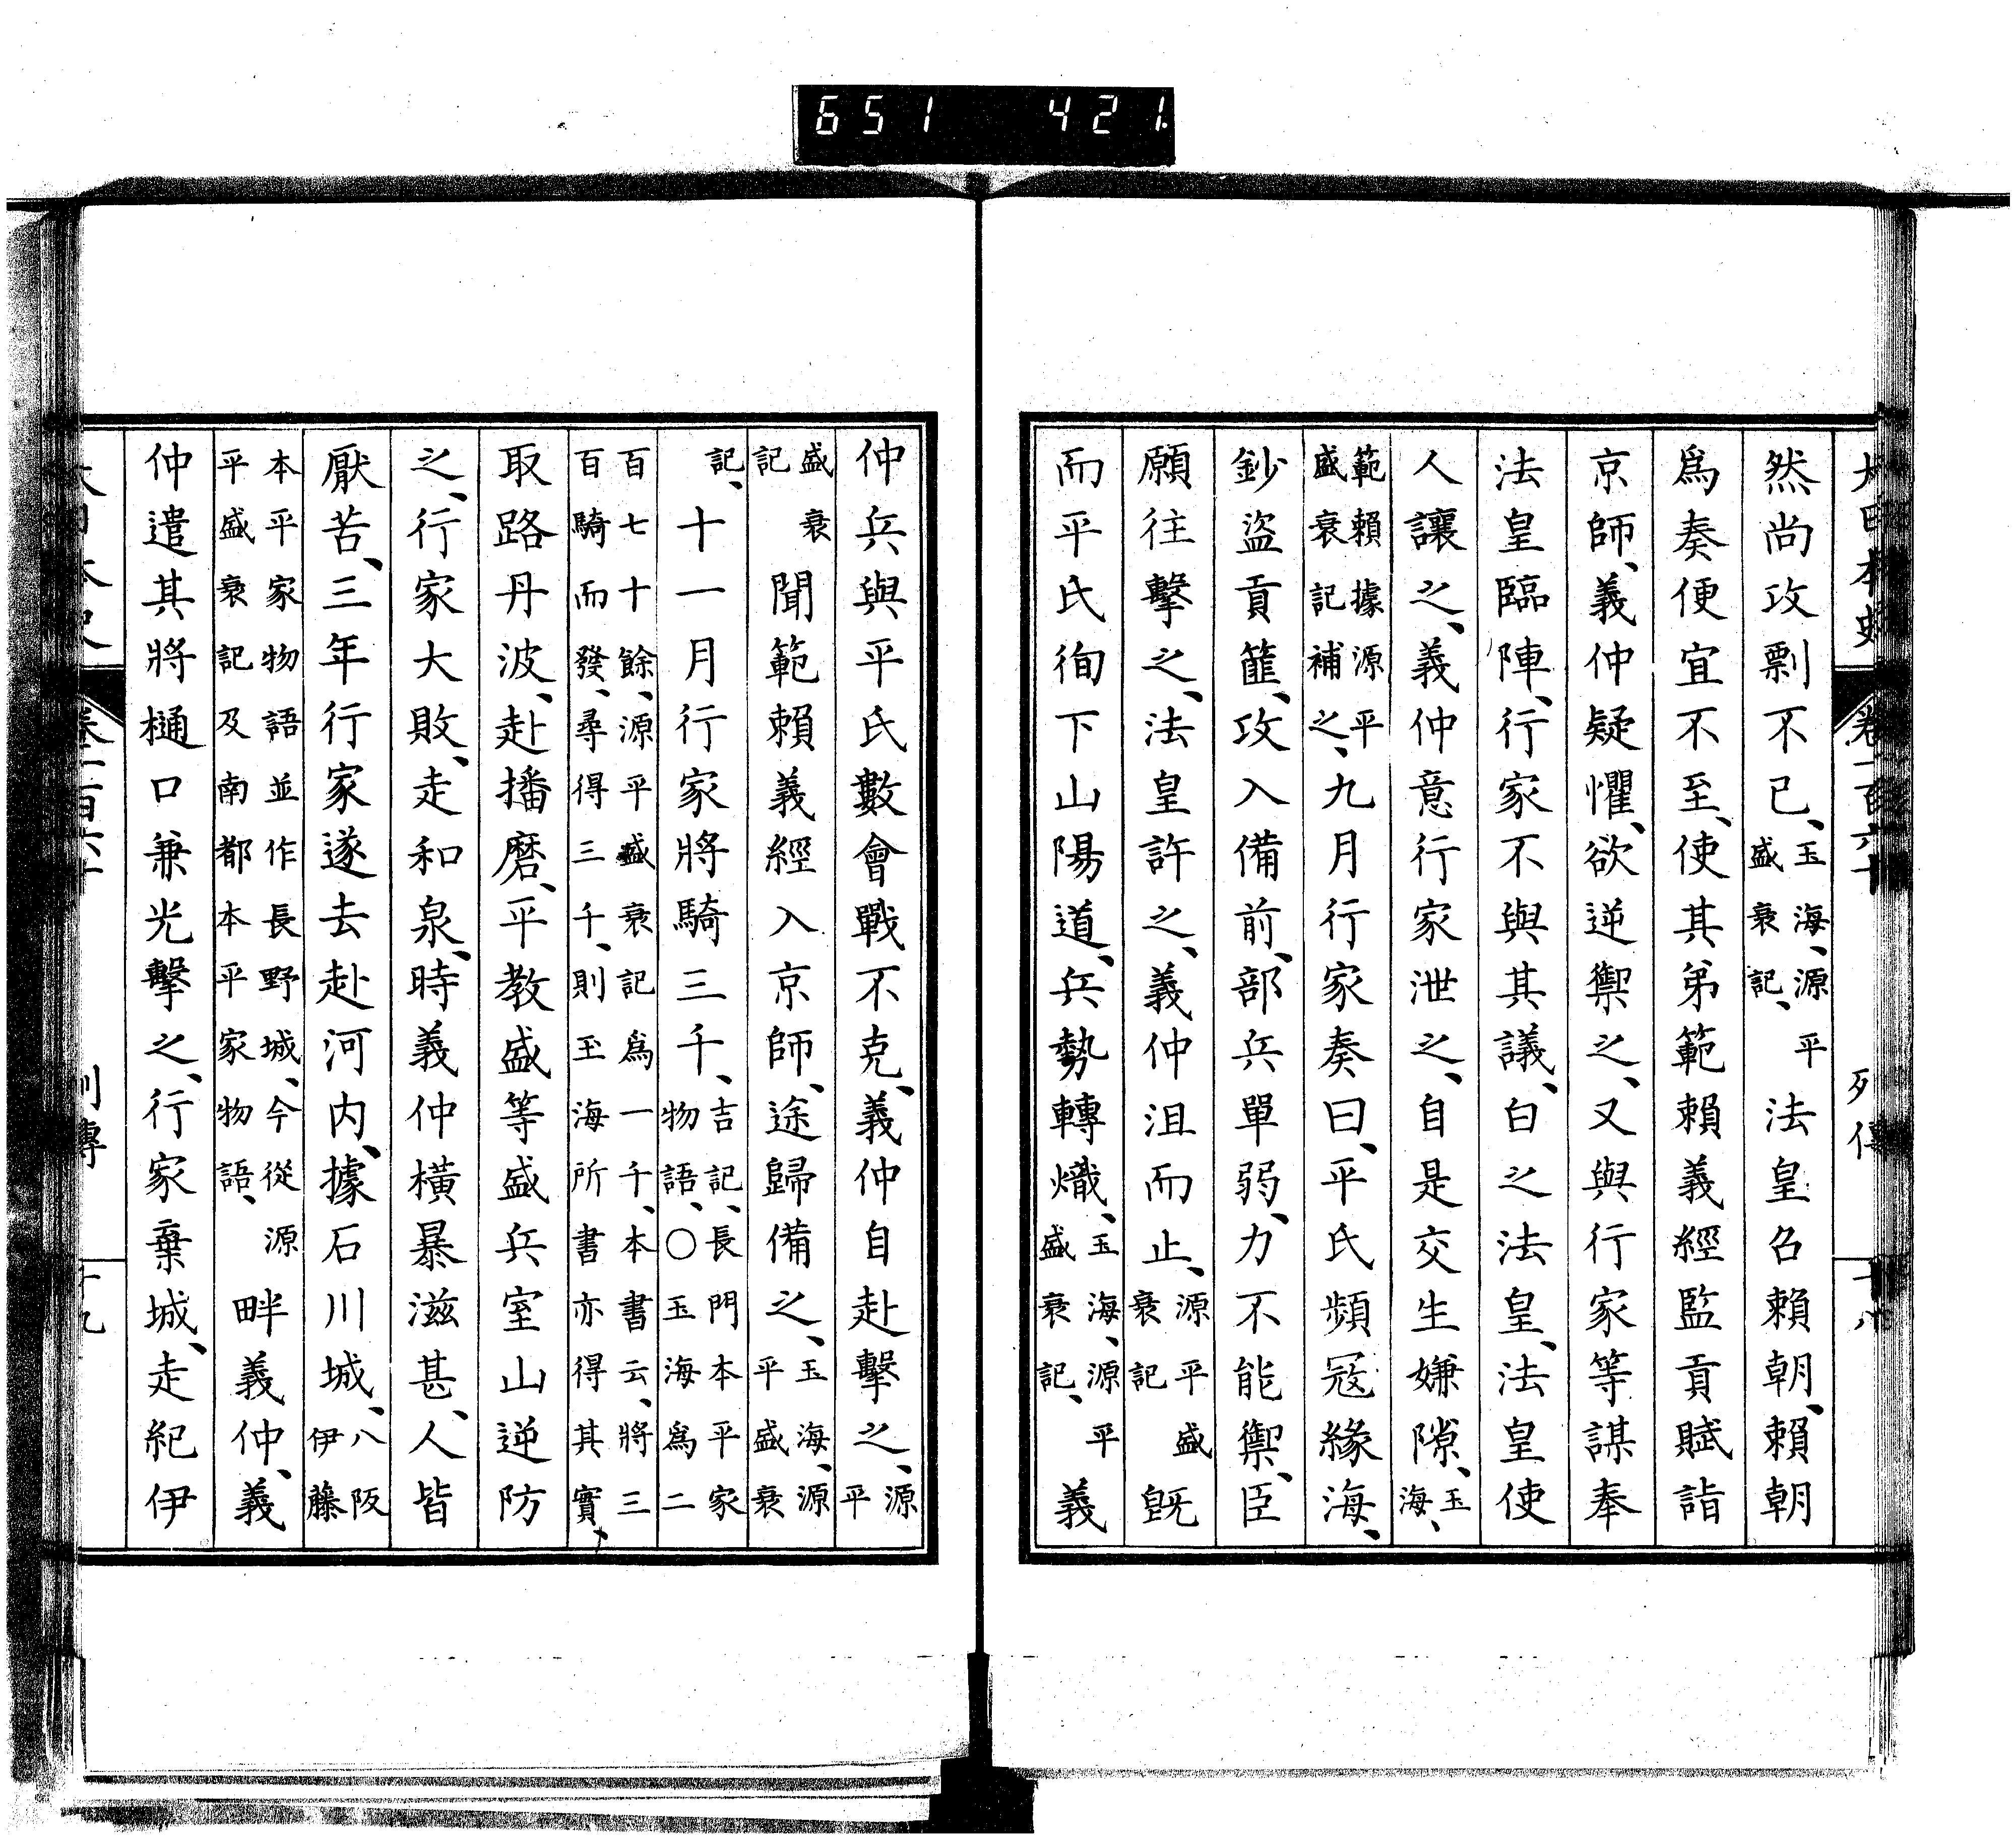 651 421.
大日本史 卷一百六十 列傳 十八
然尚攻剽不已、玉海、源平盛衰記、法皇召賴朝、賴朝
爲奏便宜不至、使其弟範賴義經監貢賦詣
京師、義仲疑懼、欲逆禦之、又與行家等謀奉
法皇臨陣、行家不與其議、白之法皇、法皇使
人讓之、義仲意行家泄之、自是交生嫌隙、玉海、
範賴據源平盛衰記補之、九月行家奏曰、平氏頻寇緣海、
鈔盜貢篚、攻入備前、部兵單弱、力不能禦、臣
願往擊之、法皇許之、義仲沮而止、源平盛衰記既
而平氏徇下山陽道、兵勢轉熾、玉海、源平盛衰記、義
仲兵與平氏數會戰不克、義仲自赴擊之、源平
盛衰記聞範賴義經入京師、途歸備之、玉海、源平盛衰
記、十一月行家將騎三千、吉記、長門本平家物語、○玉海爲二
百七十餘、源平盛衰記爲一千、本書云、將三百騎而發、尋得三千、則玉海所書亦得其實、
取路丹波、赴播磨、平教盛等盛兵室山逆防
之、行家大敗、走和泉、時義仲橫暴滋甚、人皆
厭苦、三年行家遂去赴河内、據石川城、八阪伊藤
本平家物語並作長野城、今從源平盛衰記及南都本平家物語、畔義仲、義
仲遣其將樋口兼光擊之、行家棄城、走紀伊
大日本史 卷一百六十 列傳 十九